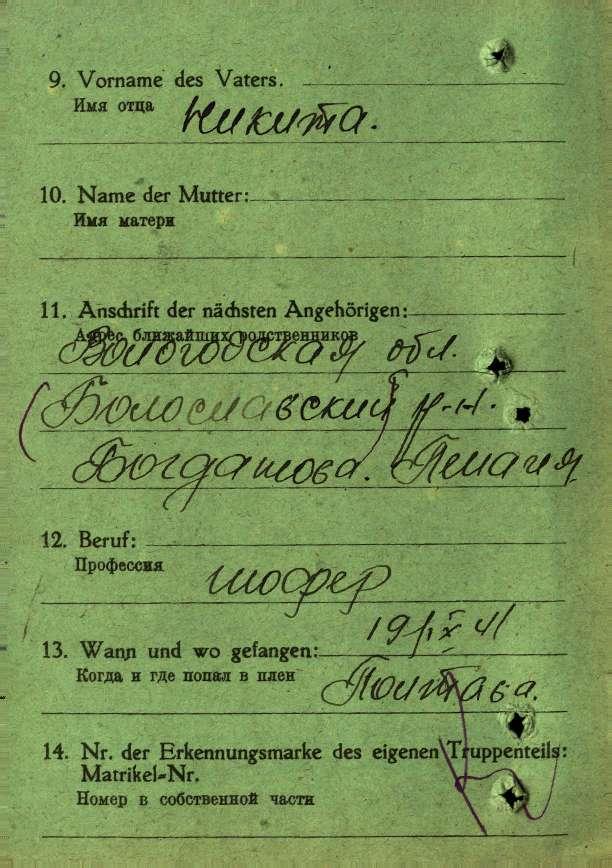 9. Vorname des Vaters.
Имя отца
Никита.
10. Name der Mutter:
Имя матери
11. Anschrift der nächsten Angehörigen:
Адрес ближайших родственников
Вологодская обл.
(Болославский) р-н.
Богдашова. Пелагея
12. Beruf:
Профессия
шофер
13. Wann und wo gefangen:
Когда и где попал в плен
19/IX 41
Полтава.
14. Nr. der Erkennungsmarke des eigenen Truppenteils:
Matrikel-Nr.
Номер в собственной части